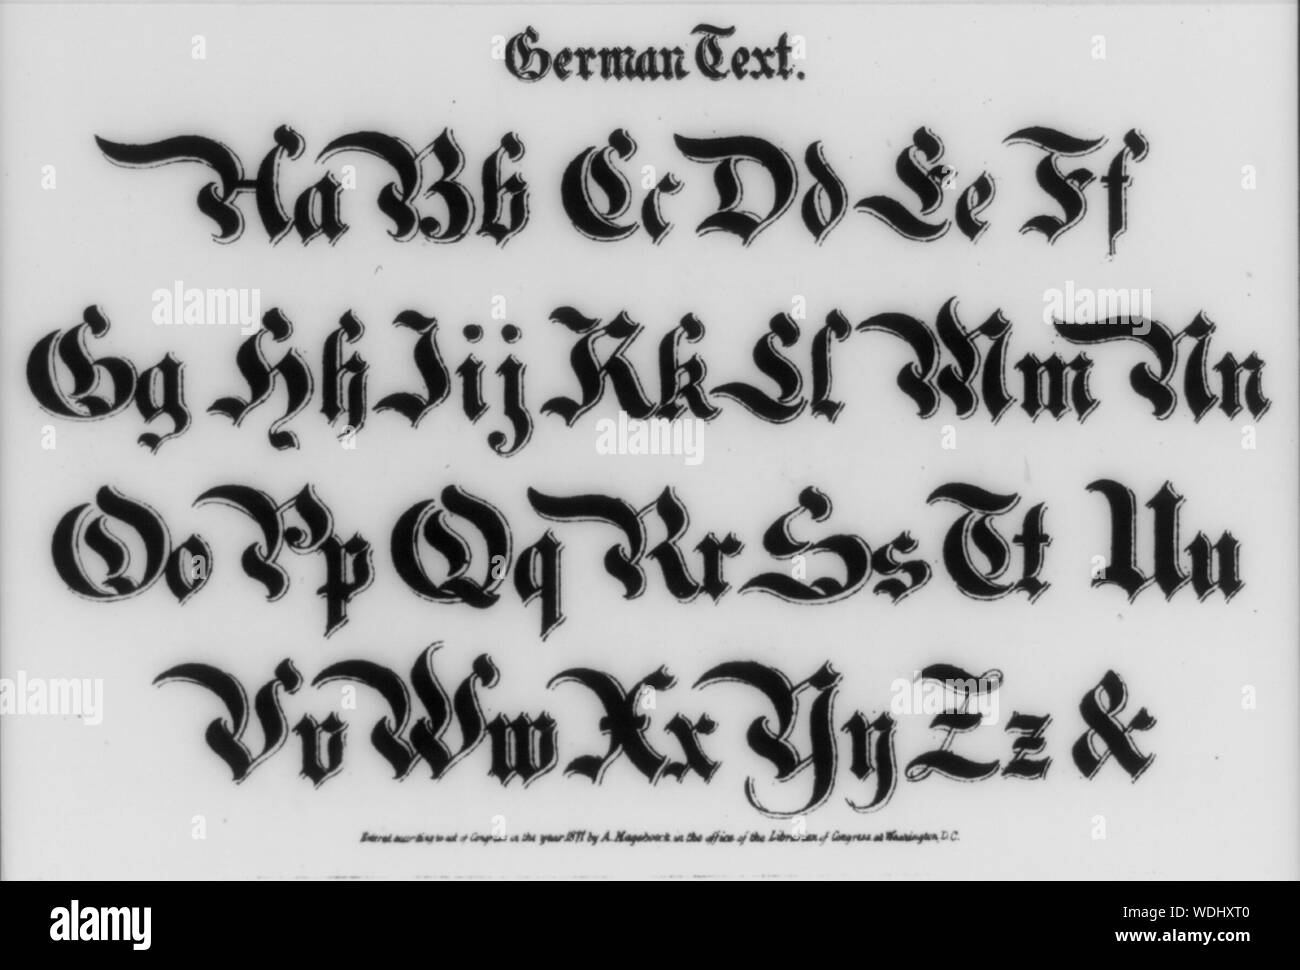 German Text.
Aa Bb Cc Dd Ee Ff
Gg Hh Iij Kk Ll Mm Nn
Oo Pp Qq Rr Ss Tt Uu
Vv Ww Xx Yy Zz &
Entered according to act of Congress in the year 1877 by A. Hageboeck in the office of the Librarian of Congress at Washington, D.C.
alamy
Image ID: WDHXT0
www.alamy.com